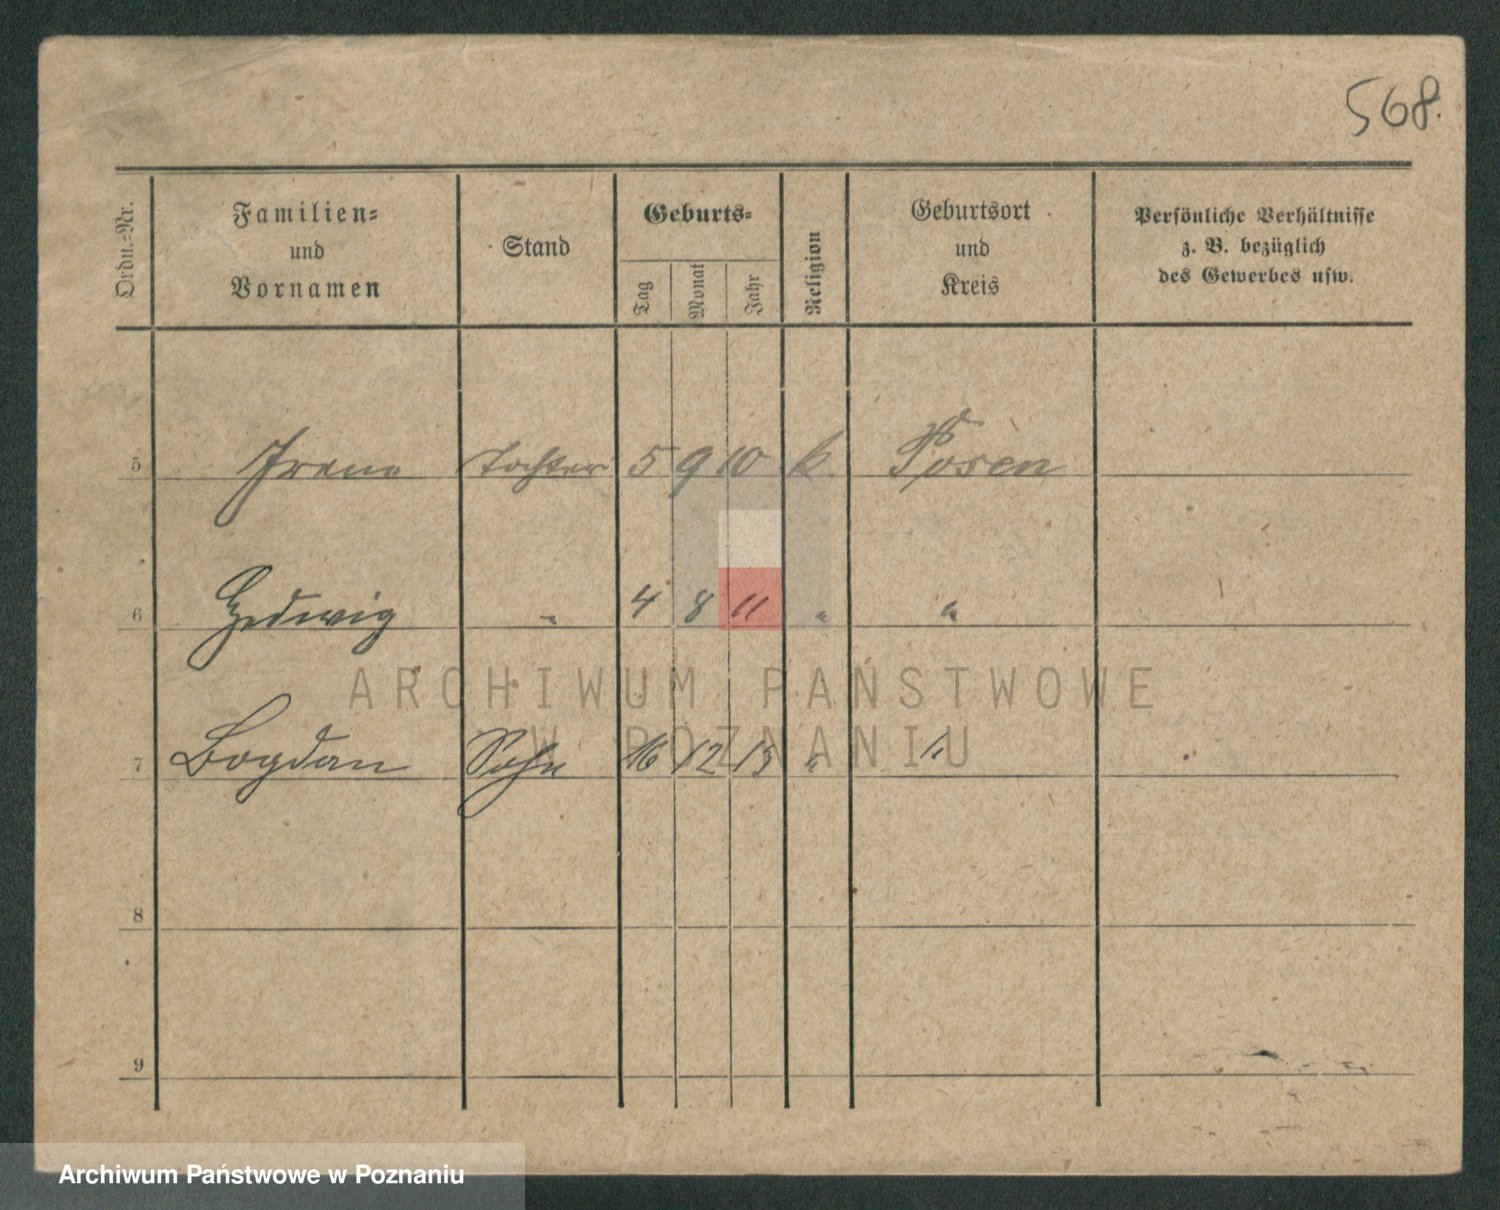 568.
Ordn.-Nr.
Familien-
und
Vornamen
Stand
Geburts-
Tag
Monat
Jahr
Religion
Geburtsort
und
Kreis
Persönliche Verhältnisse
z. B. bezüglich
des Gewerbes usw.
5 Irene Tochter 5 9 10 k. Posen
6 Hedwig " 4 8 11 " "
ARCHIWUM PAŃSTWOWE
W POZNANIU
7 Bogdan Sohn 16 12 13 " "
8
9
Archiwum Państwowe w Poznaniu